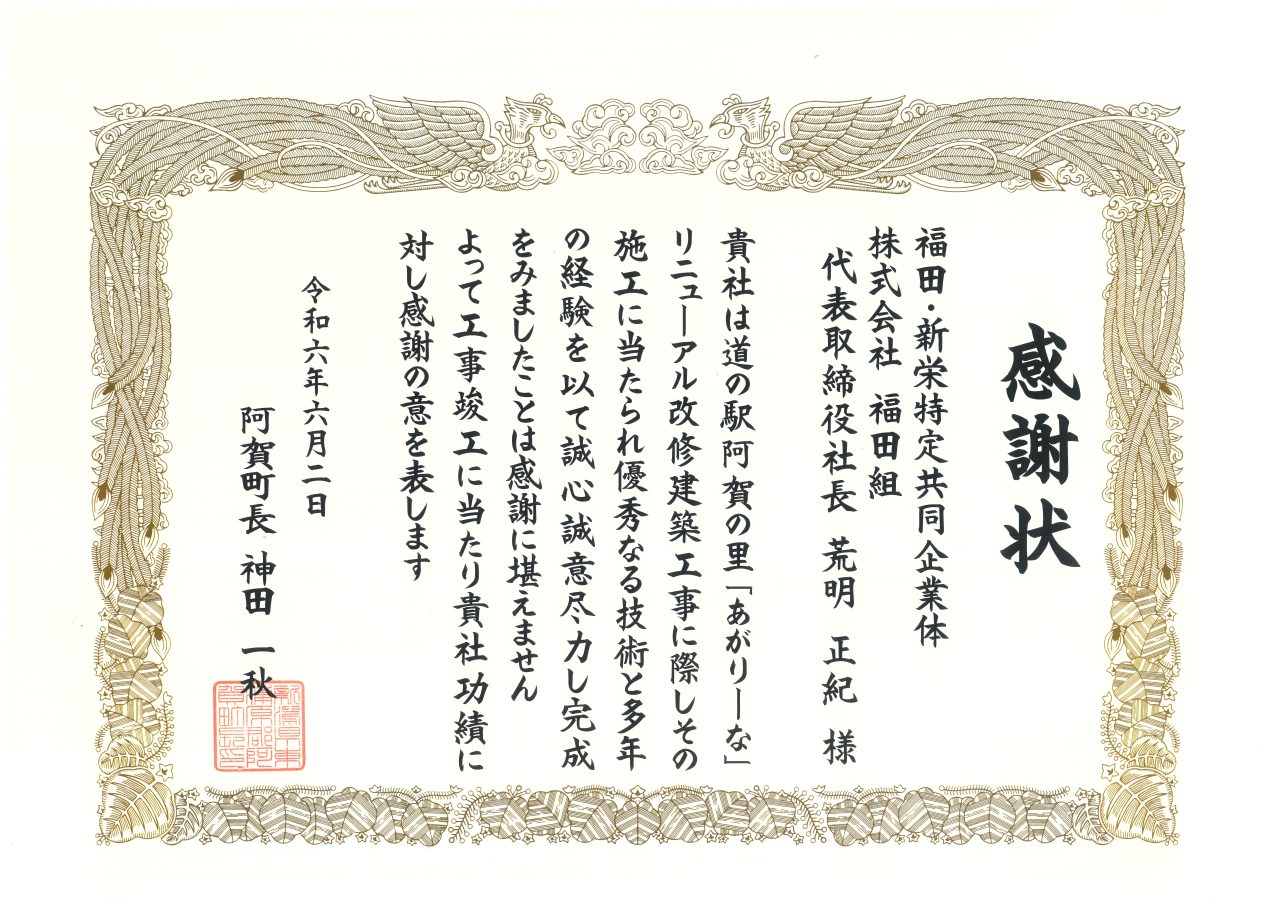 感謝状
福田・新栄特定共同企業体
株式会社 福田組
代表取締役社長 荒明 正紀 様
貴社は道の駅阿賀の里「あがりーな」
リニューアル改修建築工事に際しその
施工に当たられ優秀なる技術と多年
の経験を以て誠心誠意尽力し完成
をみましたことは感謝に堪えません
よって工事竣工に当たり貴社功績に
対し感謝の意を表します
令和六年六月二日
阿賀町長 神田 一秋
新潟県東
蒲原郡阿
賀町長印